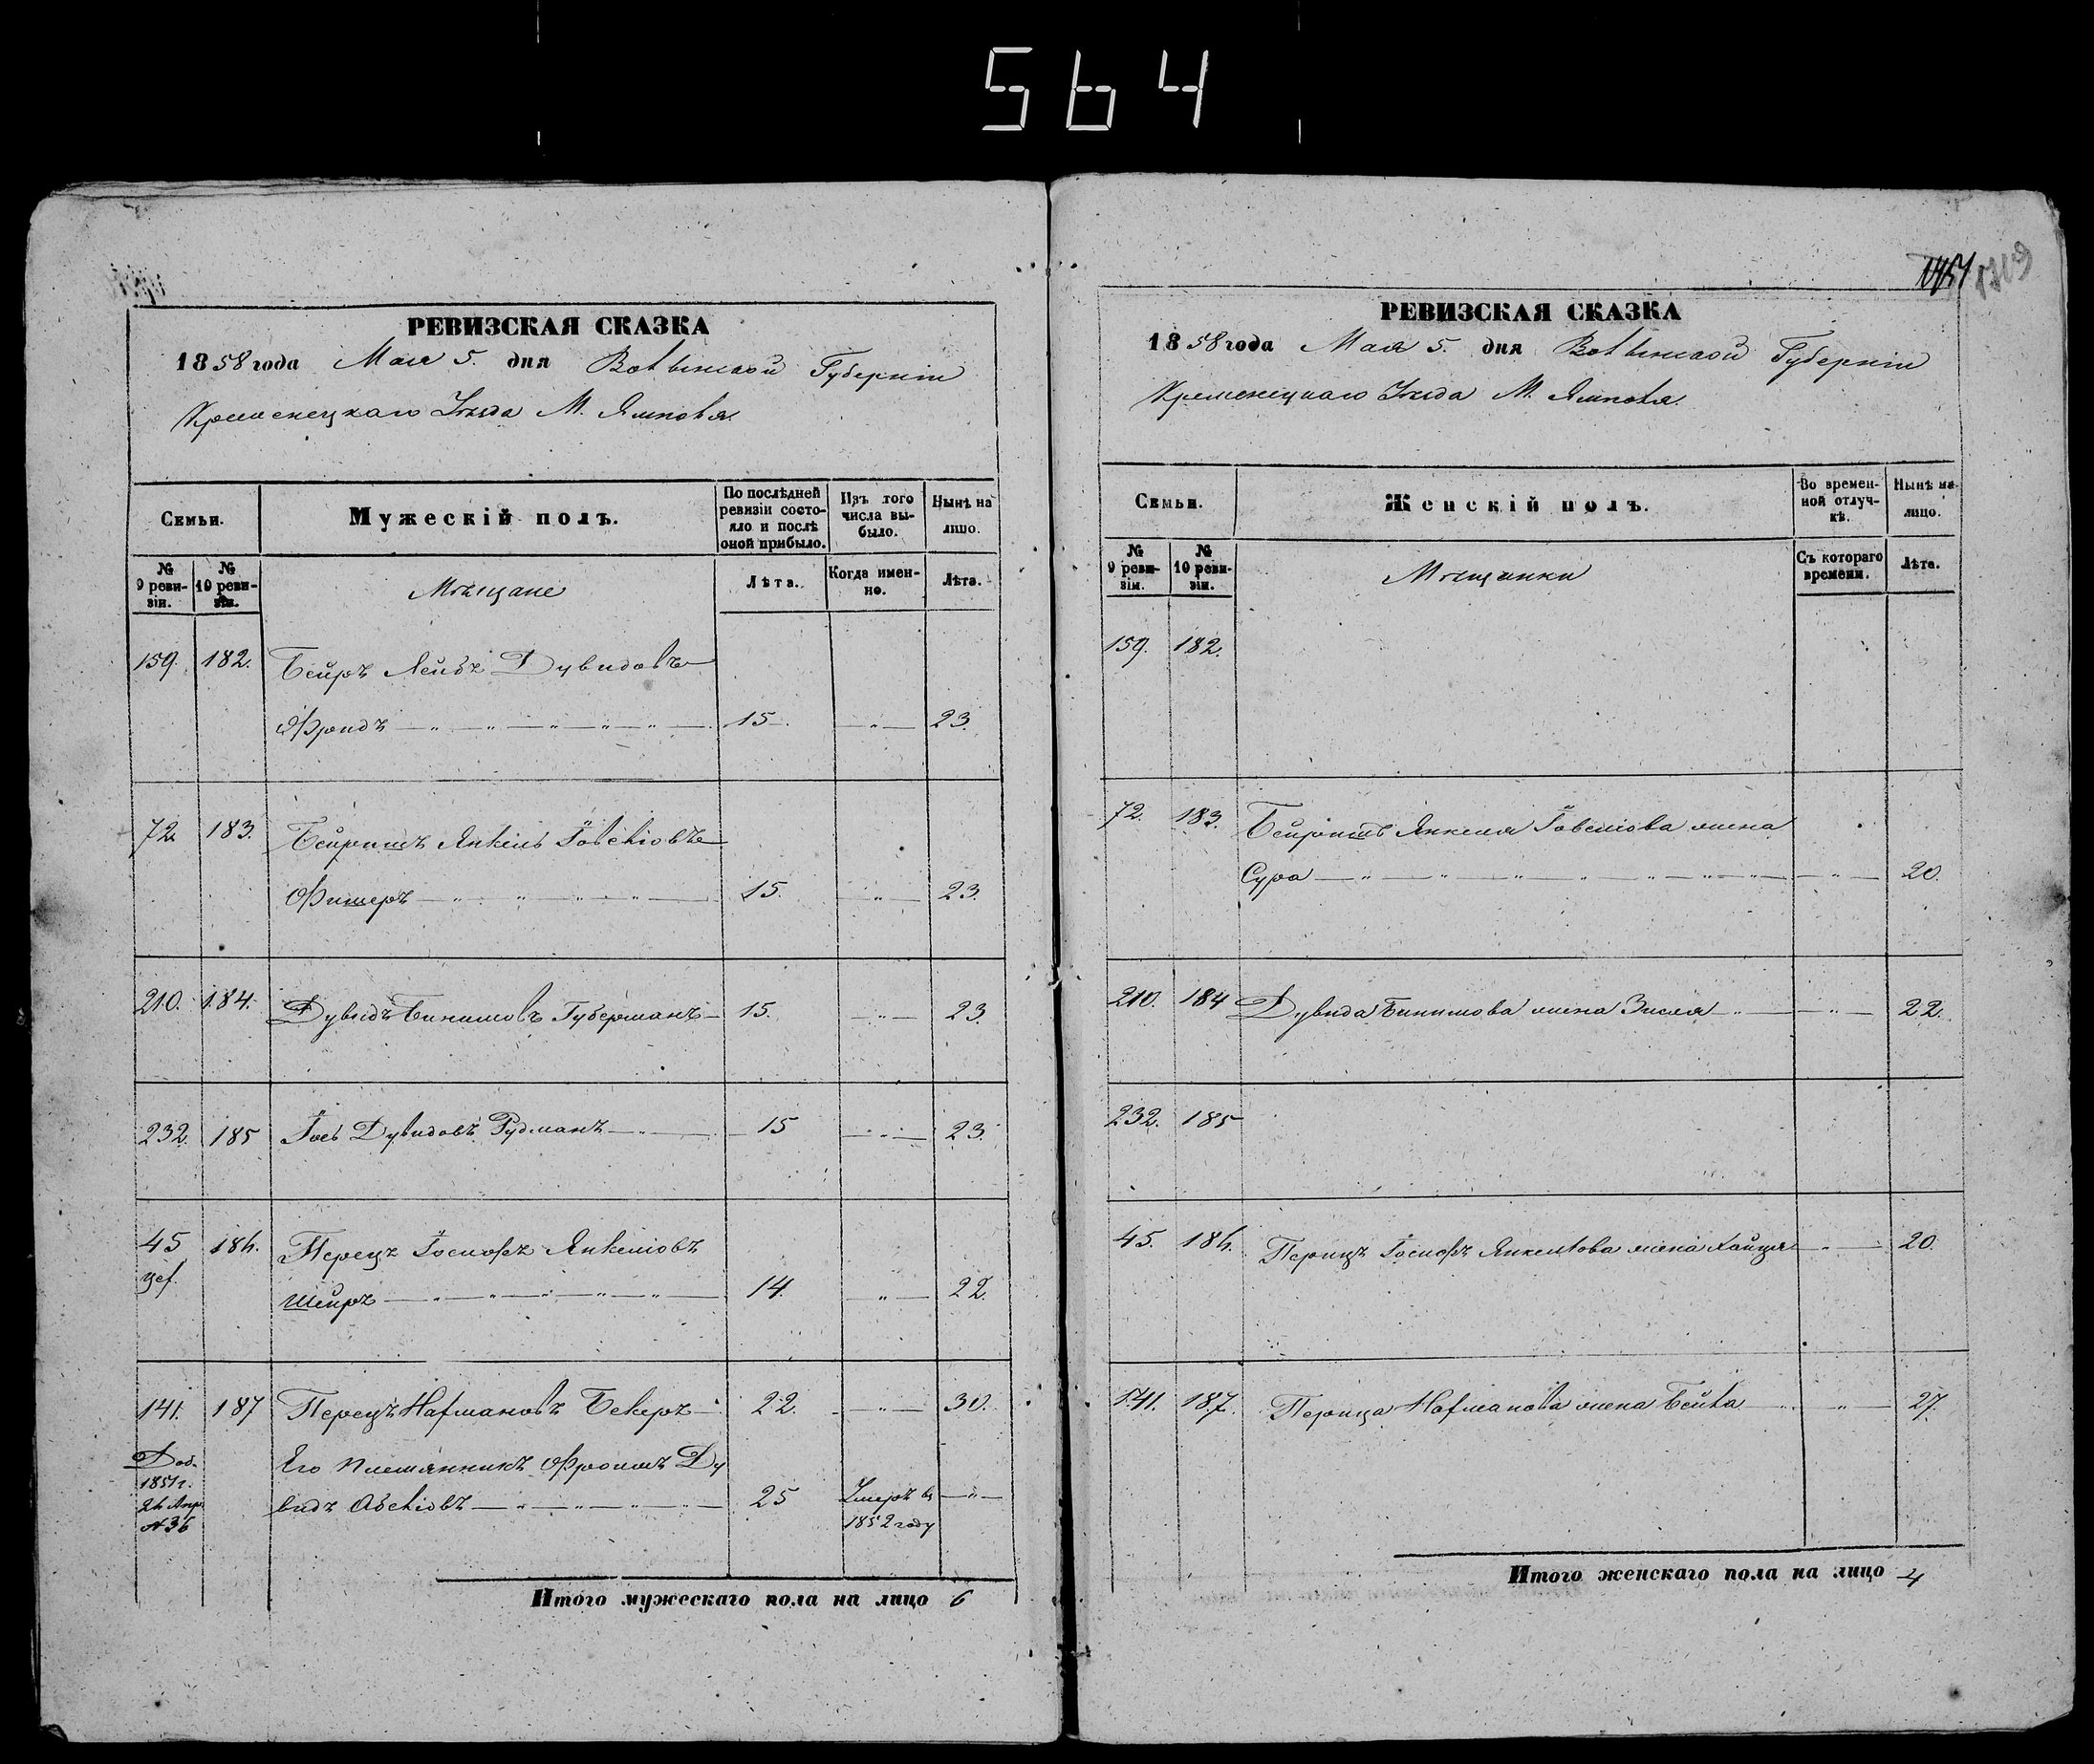 564
РЕВИЗСКАЯ СКАЗКА
1858 года Мая 5. дня Волынской Губерніи
Кременецкаго Уѣзда М. Ямполя.
Семьи.
Мужескій полъ.
По послѣдней ревизіи состояло и послѣ оной прибыло.
Изъ того числа выбыло.
Нынѣ на лицо.
№ 9 ревизіи.
№ 10 ревизіи.
Мѣщане
Лѣта.
Когда именно.
Лѣта.
159. 182. Бейръ Лейбъ Дувидовъ
Фроидъ 15. 23.
72. 183. Бейришъ Янкель Іовеліовъ
Фишеръ 15. 23.
210. 184. Дувидъ Бинишовъ Губерманъ 15. 23.
232. 185 Іось Дувидовъ Рудманъ 15 23.
45 186. Перецъ Іосифъ Янкеліовъ
Шейръ 14. 22.
141. 187 Перецъ Нахмановъ Бекеръ 22. 30.
Доб. 1851 г. 26 Апр. № 36
Его племянникъ Фроимъ Ду
видъ Абеліовъ 25 Умеръ въ 1852 году
Итого мужескаго пола на лицо 6
1709
РЕВИЗСКАЯ СКАЗКА
1858 года Мая 5. дня Волынской Губерніи
Кременецкаго Уѣзда М. Ямполя.
Семьи.
Женскій полъ.
Во временной отлучкѣ.
Нынѣ на лицо.
№ 9 ревизіи.
№ 10 ревизіи.
Мѣщанки
Съ котораго времени.
Лѣта.
159. 182.
72. 183. Бейришъ Янкеля Іовеліова жена
Сура 20.
210. 184 Дувида Бинишова жена Зисля 22.
232. 185
45. 186. Перицъ Іосифъ Янкеліова жена Хайця 20.
141. 187. Перица Нахманова жена Бейла 27.
Итого женскаго пола на лицо 4